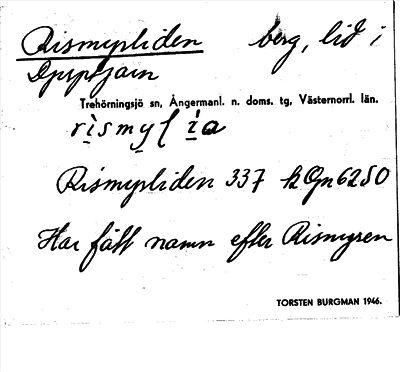 Rismyrliden berg, lid i
Gpsptjärn
Trehörningsjö sn, Ångermanl. n. doms. tg, Västernorrl. län.
rismyl ia
Rismyrliden 337 h Gn6250
Har fått namn efter Rismyren
TORSTEN BURGMAN 1946.